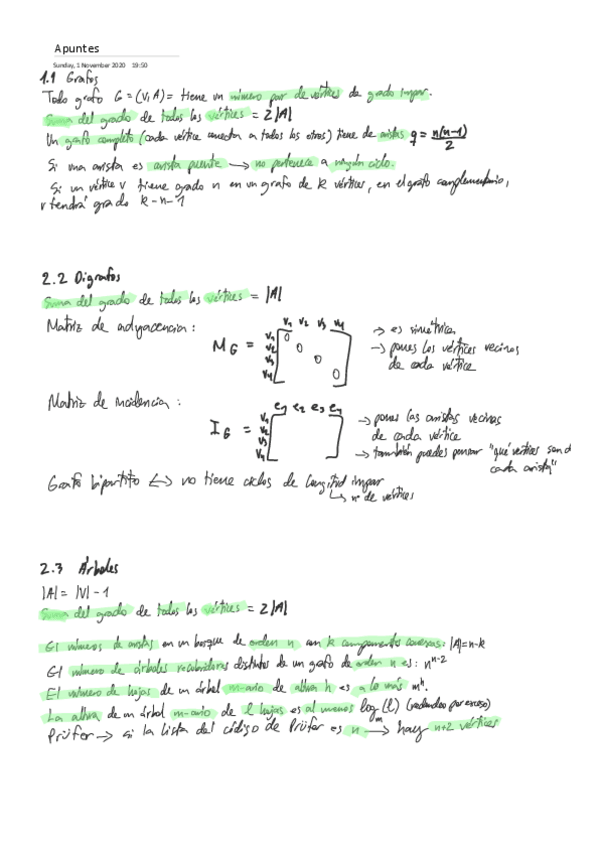 Apuntes
Sunday, 1 November 2020 19:50
1.1 Grafos
Todo grafo G = (V, A) = tiene un número par de vértices de grado impar.
Suma del grado de todos los vértices = 2|A|
Un grafo completo (cada vértice conectan a todos los otros) tiene de aristas q = n(n-1)/2
Si una arista es arista puente → no pertenece a ningún ciclo.
Si un vértice v tiene grado n en un grafo de k vértices, en el grafo complementario,
v tendrá grado k-n-1
2.2 Digrafos
Suma del grado de todos los vértices = |A|
Matriz de adyacencia:
v1 v2 v3 v4
M_G =
v1 0
v2 0
v3 0
v4 0
→ es simétrica
→ pones los vértices vecinos
de cada vértice
Matriz de incidencia:
e1 e2 e3 e4
I_G =
v1
v2
v3
v4
→ pones las aristas vecinas
de cada vértice
→ también puedes pensar "qué vértices son d
cada arista"
Grafo bipartito ↔ no tiene ciclos de longitud impar
↳ nº de vértices
2.3 Árboles
|A| = |V| - 1
Suma del grado de todos los vértices = 2|A|
El número de aristas en un bosque de orden n con k componentes conexas: |A|=n-k
El número de árboles recubridores distintos de un grafo de orden n es: n^(n-2)
El número de hojas de un árbol m-ario de altura h es a lo más m^h.
La altura de un árbol m-ario de l hojas es al menos log_m(l) (redondeo por exceso)
Prüfer → si la lista del código de Prüfer es n → hay n+2 vértices